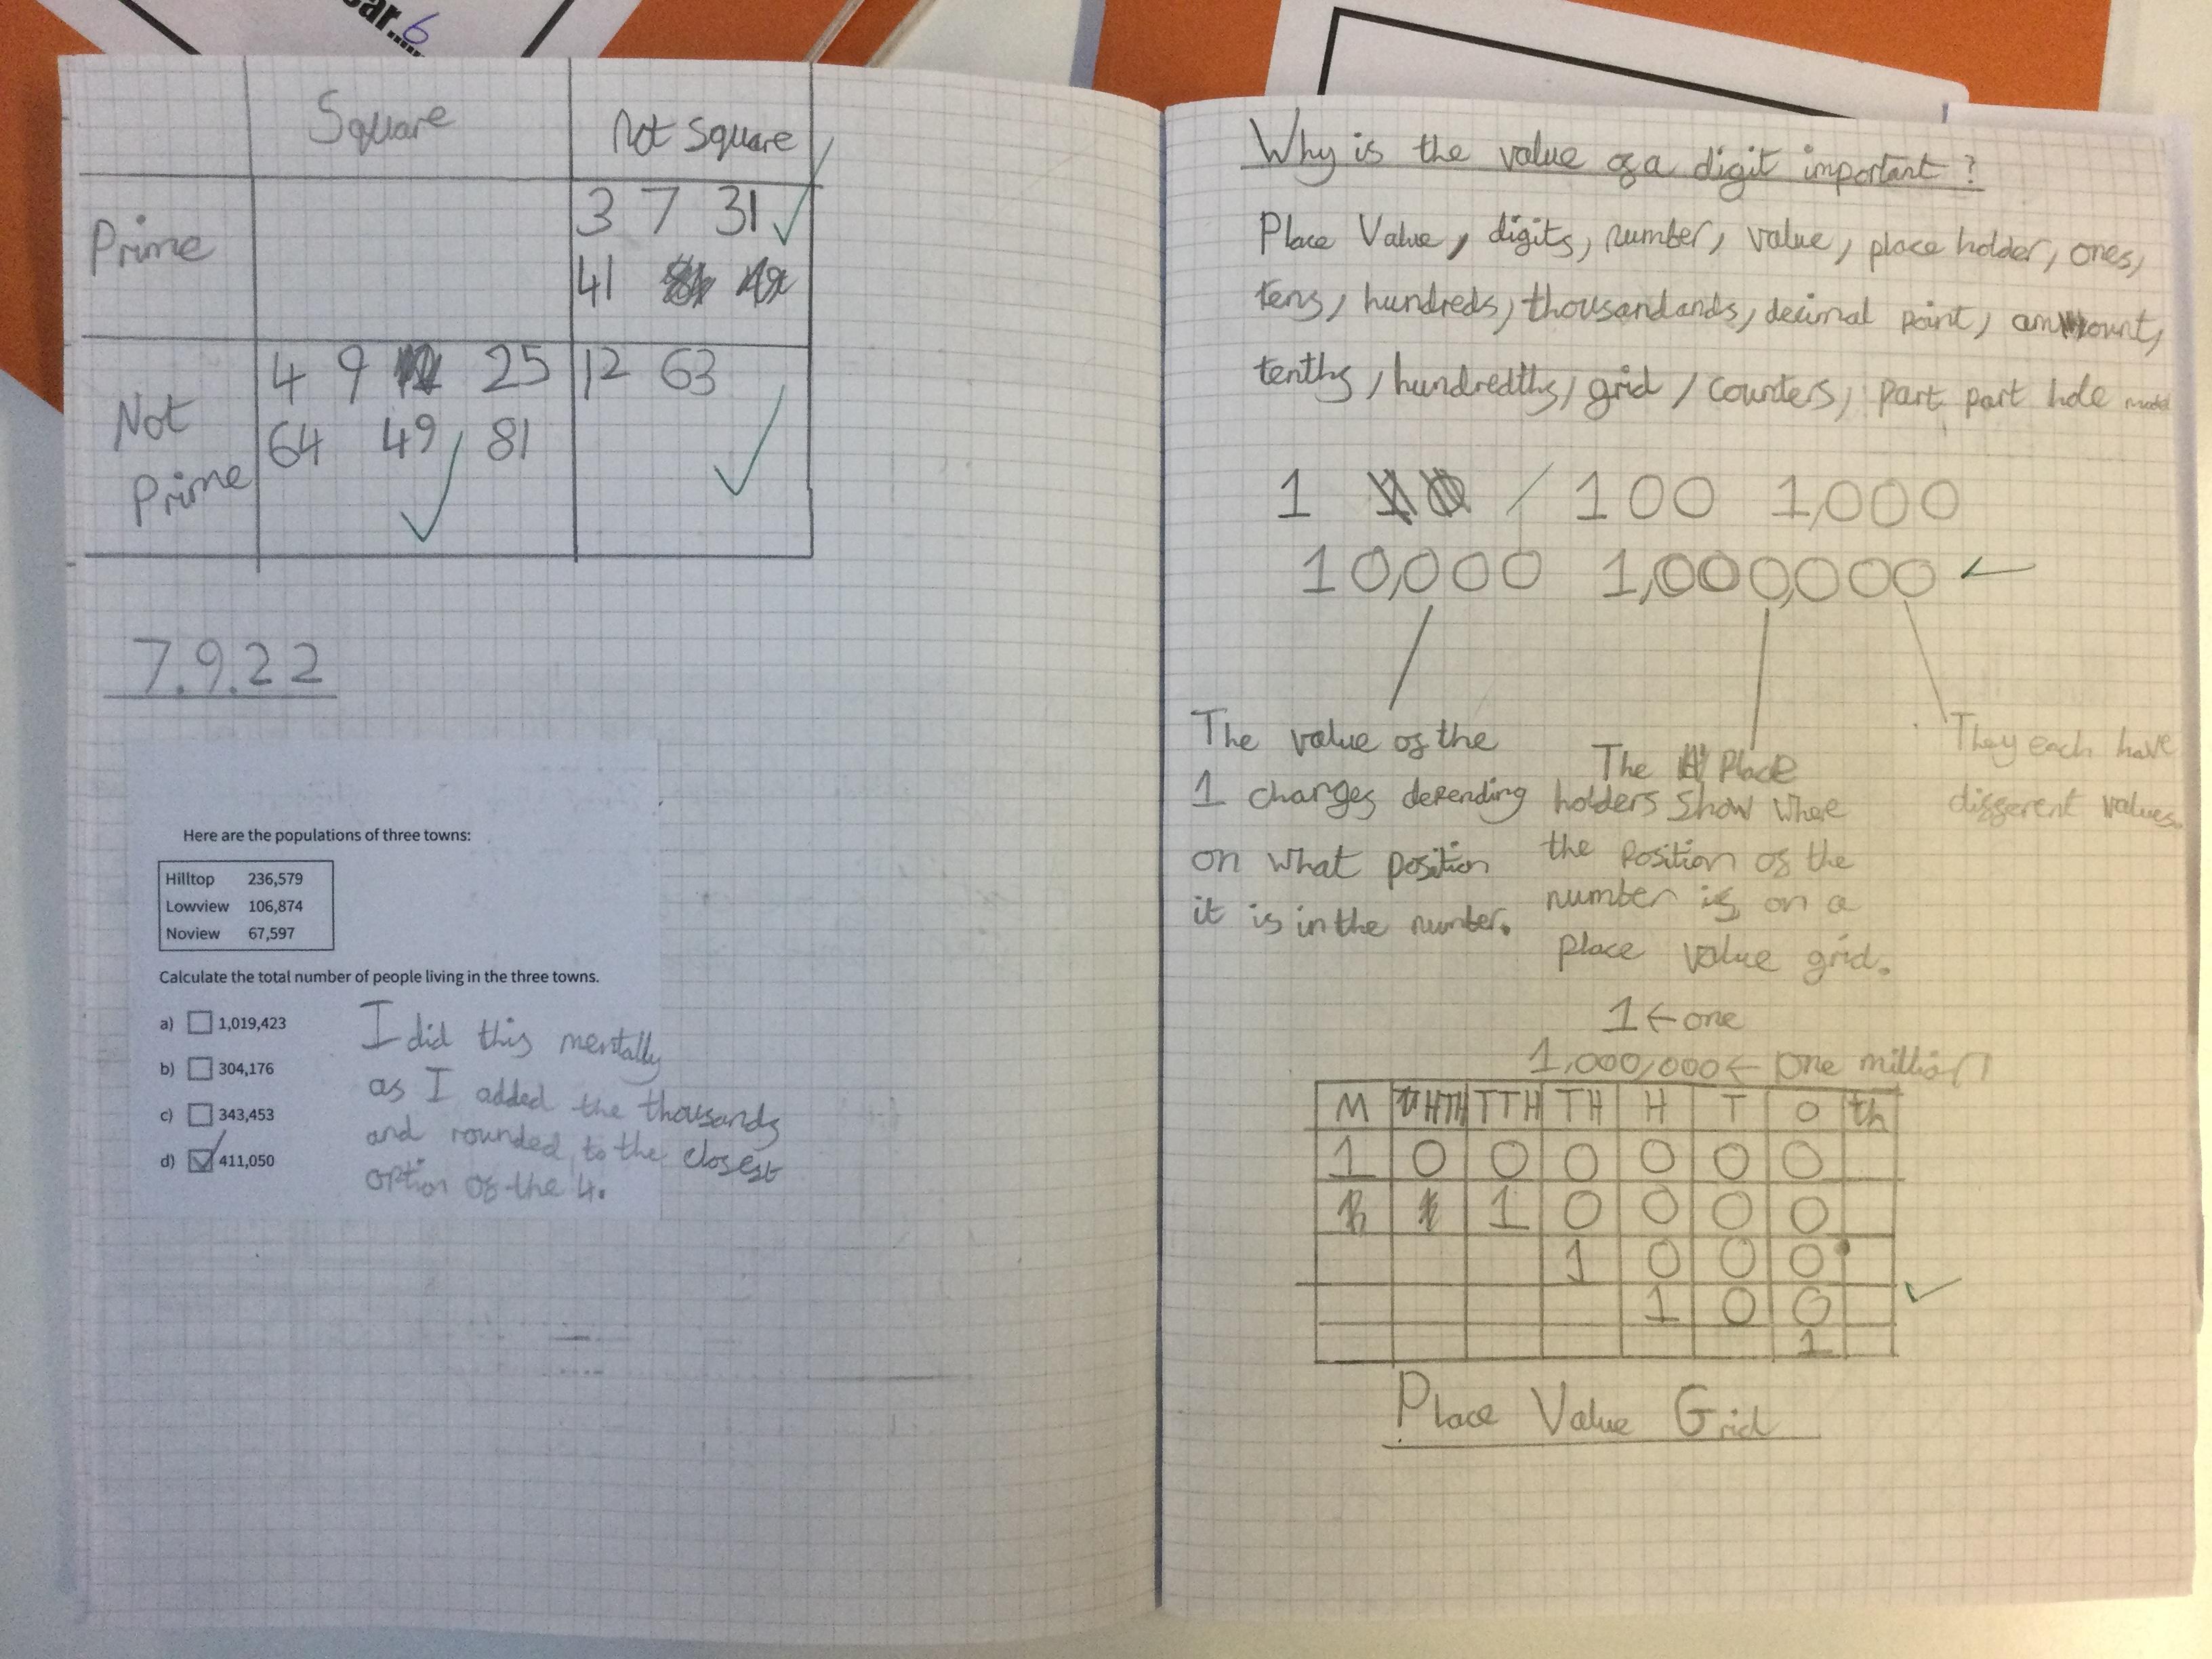 ar...... 6
Square Not Square
Prime 3 7 31
41
Not Prime 4 9 25 12 63
64 49 81
7.9.22
Here are the populations of three towns:
Hilltop 236,579
Lowview 106,874
Noview 67,597
Calculate the total number of people living in the three towns.
a) 1,019,423
b) 304,176
c) 343,453
d) 411,050
I did this mentally
as I added the thousands
and rounded to the closest
option of the 4.
Why is the value of a digit important?
Place Value, digits, number, value, place holder, ones,
tens, hundreds, thousandands, decimal point, amount,
tenths, hundredths, grid, counters, part part hole model
1 100 1,000
10,000 1,000,000
The value of the
1 changes depending
on what position
it is in the number.
The Place
holders show where
the position of the
number is on a
place value grid.
They each have
different values.
1 ← one
1,000,000 ← one million
M HTH TTH TH H T O th
1 0 0 0 0 0 0
1 0 0 0 0
1 0 0 0 .
1 0 0
1
Place Value Grid